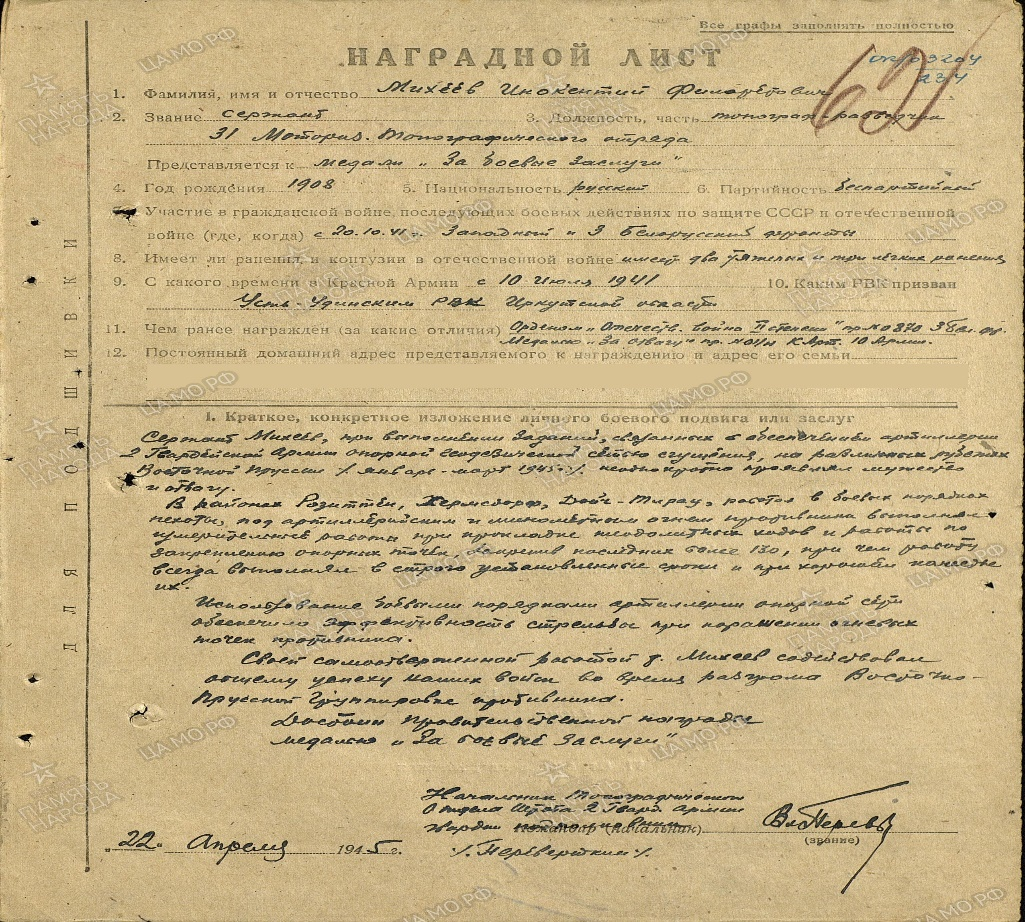 Все графы заполнять полностью
НАГРАДНОЙ ЛИСТ
1. Фамилия, имя и отчество Михеев Инокентий Филаретович
2. Звание сержант 3. Должность, часть топограф-разведчик
31 Моториз. Топографического отряда
Представляется к медали „За боевые заслуги"
4. Год рождения 1908 5. Национальность русский 6. Партийность беспартийный
Участие в гражданской войне, последующих боевых действиях по защите СССР и отечественной
войне (где, когда) с 20.10.41 г. Западный и 3 Белорусский фронты
8. Имеет ли ранения и контузии в отечественной войне имеет два тяжелых и три легких ранения
9. С какого времени в Красной Армии с 10 июля 1941 10. Каким РВК призван
Усть-Удинским РВК Иркутской области
11. Чем ранее награжден (за какие отличия) Орденом „Отечеств. война II степени" пр. № 0870 3 Бел. фр.
Медалью „За отвагу" пр. К Арт. 10 Армии.
12. Постоянный домашний адрес представляемого к награждению и адрес его семьи
I. Краткое, конкретное изложение личного боевого подвига или заслуг
Сержант Михеев, при выполнении заданий, связанных с обеспечением артиллерии
2 Гвардейской Армии опорной геодезической сетью сгущения, на различных участках
Восточной Пруссии /январь-март 1945 г./ неоднократно проявлял мужество
и отвагу.
В районах Розиттен, Хермсдорф, Дойч-Тирау, работая в боевых порядках
пехоты, под артиллерийским и минометным огнем противника выполнял
измерительные работы при прокладке теодолитных ходов и работы по
закреплению опорных точек, закрепив последних более 130, при чем работу
всегда выполнял в строго установленные сроки и при хорошем качестве
их.
Использование боевыми порядками артиллерии опорной сети
обеспечило эффективность стрельбы при поражении огневых
точек противника.
Своей самоотверженной работой т. Михеев содействовал
общему успеху наших войск во время разгрома Восточно-
Прусской Группировки противника.
Достоин Правительственной награды
медалью „За боевые заслуги"
Начальник Топографического
Отдела Штаба 2 Гвард. Армии
Гвардии Командир (начальник)
(звание)
„22" Апреля 1945 г. /Переверткин/
ДЛЯ ПОДШИВКИ
621
ПАМЯТЬ НАРОДА
ЦАМО.РФ